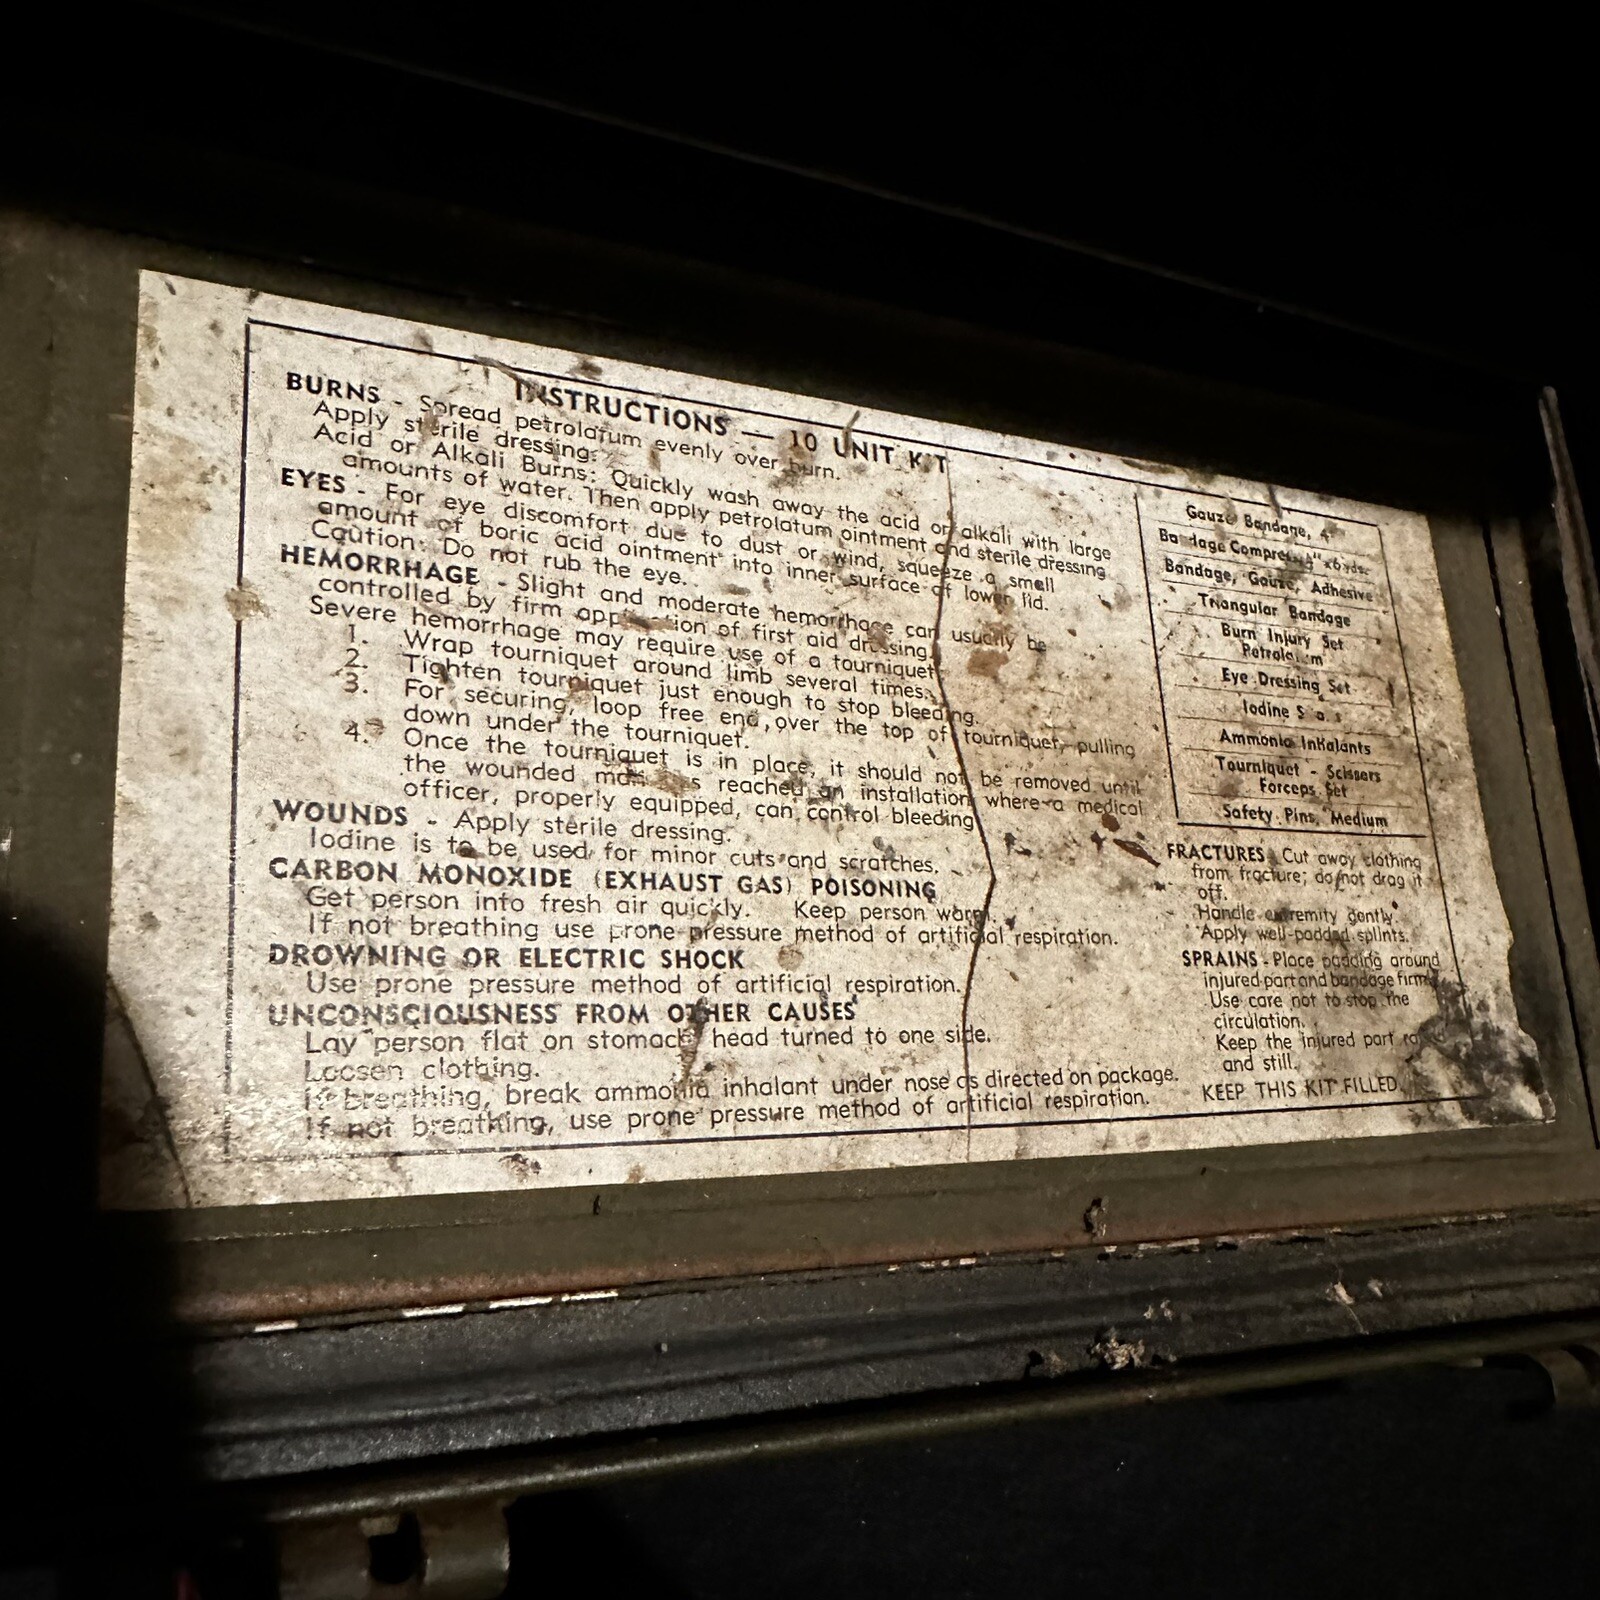 INSTRUCTIONS — 10 UNIT KIT
BURNS - Spread petrolatum evenly over burn.
Apply sterile dressing.
Acid or Alkali Burns: Quickly wash away the acid or alkali with large
amounts of water. Then apply petrolatum ointment and sterile dressing.
EYES - For eye discomfort due to dust or wind, squeeze a small
amount of boric acid ointment into inner surface of lower lid.
Caution: Do not rub the eye.
HEMORRHAGE - Slight and moderate hemorrhage can usually be
controlled by firm application of first aid dressing.
Severe hemorrhage may require use of a tourniquet.
1. Wrap tourniquet around limb several times.
2. Tighten tourniquet just enough to stop bleeding.
3. For securing, loop free end over the top of tourniquet, pulling
down under the tourniquet.
4. Once the tourniquet is in place, it should not be removed until
the wounded man has reached an installation where a medical
officer, properly equipped, can control bleeding
WOUNDS - Apply sterile dressing.
Iodine is to be used for minor cuts and scratches.
CARBON MONOXIDE (EXHAUST GAS) POISONING
Get person into fresh air quickly. Keep person warm.
If not breathing use prone pressure method of artificial respiration.
DROWNING OR ELECTRIC SHOCK
Use prone pressure method of artificial respiration.
UNCONSCIOUSNESS FROM OTHER CAUSES
Lay person flat on stomach, head turned to one side.
Loosen clothing.
If breathing, break ammonia inhalant under nose as directed on package.
If not breathing, use prone pressure method of artificial respiration.
Gauze Bandage, 4"
Bandage Compress 4" x6 yds.
Bandage, Gauze, Adhesive
Triangular Bandage
Burn Injury Set
Petrolatum
Eye Dressing Set
Iodine
Ammonia Inhalants
Tourniquet - Scissors
Forceps Set
Safety Pins, Medium
FRACTURES Cut away clothing
from fracture; do not drag it
off.
Handle extremity gently.
Apply well-padded splints.
SPRAINS - Place padding around
injured part and bandage firmly
Use care not to stop the
circulation.
Keep the injured part
and still.
KEEP THIS KIT FILLED